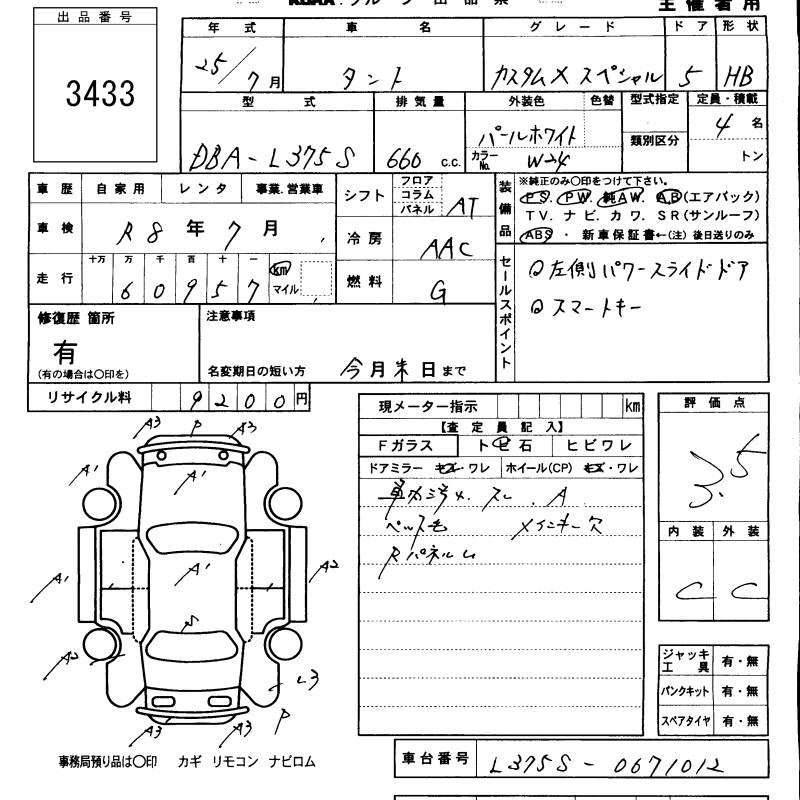 出品番号
3433
主催者用
年式 車名 グレード ドア 形状
25/7月 タント カスタムX スペシャル 5 HB
型式 排気量 外装色 色替 型式指定 定員・積載
類別区分
DBA-L375S 660 c.c. パールホワイト 4 名
カラーNo. W24 トン
車歴 自家用 レンタ 事業.営業車
車検 R8年7月
走行 十万 万 千 百 十 一 km マイル
6 0 9 5 7
シフト フロア コラム パネル AT
冷房 AAC
燃料 G
装備品
※純正のみ〇印をつけて下さい。
PS. PW. 純AW. AB(エアバック)
TV. ナビ. カワ. SR(サンルーフ)
ABS ・ 新車保証書←(注) 後日送りのみ
セールスポイント
左側パワースライドドア
スマートキー
修復歴 箇所
有
(有の場合は〇印を)
注意事項
名変期日の短い方 今月末日まで
リサイクル料 9200円
現メーター指示 km
【査定員記入】
Fガラス トビ石 ヒビワレ
ドアミラー キズ・ワレ ホイール(CP) キズ・ワレ
A
メインキー欠
Rパネル
評価点
3.5
内装 外装
C C
ジャッキ工具 有・無
パンクキット 有・無
スペアタイヤ 有・無
A3 P A3
A1 A1
A1 A1 A2
S
A2
L3
A3 A3 P
事務局預り品は〇印 カギ リモコン ナビロム
車台番号 L375S-0671012